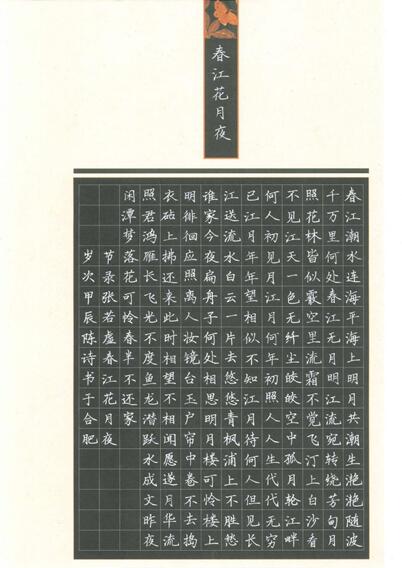 春江花月夜
春江潮水连海平海上明月共潮生滟滟随波
千万里何处春江无月明江流宛转绕芳甸月
照花林皆似霰空里流霜不觉飞汀上白沙看
不见江天一色无纤尘皎皎空中孤月轮江畔
何人初见月江月何年初照人人生代代无穷
已江月年年望相似不知江月待何人但见长
江送流水白云一片去悠悠青枫浦上不胜愁
谁家今夜扁舟子何处相思明月楼可怜楼上
明徘徊应照离人妆镜台玉户帘中卷不去捣
衣砧上拂还来此时相望不相闻愿逐月华流
照君鸿雁长飞光不度鱼龙潜跃水成文昨夜
闲潭梦落花可怜春半不还家
节录张若虚春江花月夜
岁次甲辰陈诗书于合肥